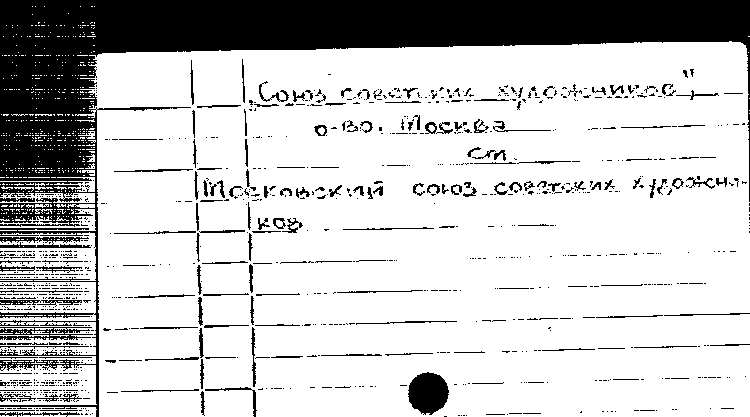 „Союз советских художников",
о-во. Москва
см.
Московский союз советских художни-
ков